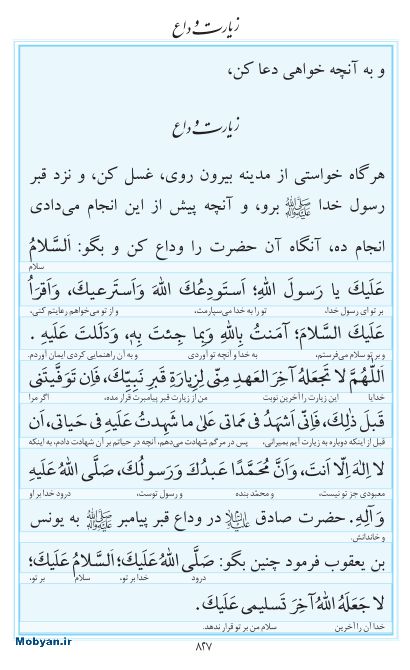 زیارت وداع
و به آنچه خواهی دعا کن،
زیارت وداع
هرگاه خواستی از مدینه بیرون روی، غسل کن، و نزد قبر
رسول خدا ﷺ برو، و آنچه پیش از این انجام می‌دادی
انجام ده، آنگاه آن حضرت را وداع کن و بگو: اَلسَّلامُ
سلام
عَلَيْكَ يا رَسولَ اللهِ؛ اَستَودِعُكَ اللهَ وَاَستَرعيكَ، وَاَقرَأُ
بر تو ای رسول خدا، تو را به خدا می‌سپارمت، و از تو می‌خواهم رعایتم کنی،
عَلَيكَ السَّلامَ؛ آمَنتُ بِاللهِ وَبِما جِئتَ بِهِ، وَدَلَلتَ عَلَيهِ .
و بر تو سلام می‌فرستم، به خدا و آنچه تو آوردی و به آن راهنمایی کردی ایمان آوردم.
اَللّهُمَّ لا تَجعَلهُ آخِرَ العَهدِ مِنّى لِزِيارَةِ قَبرِ نَبِيِّكَ، فَاِن تَوَفَّيتَنى
خدایا این زیارت را آخرین نوبت من از زیارت قبر پیامبرت قرار مده، اگر مرا
قَبلَ ذلِكَ، فَاِنّى اَشهَدُ فى مَماتى عَلى ما شَهِدتُ عَلَيهِ فى حَياتى، اَن
قبل از اینکه دوباره به زیارت آیم بمیرانی، پس در مرگم شهادت می‌دهم، آنچه در حیاتم بر آن شهادت دادم، به اینکه
لا اِلهَ اِلّا اَنتَ، وَاَنَّ مُحَمَّدًا عَبدُكَ وَرَسولُكَ، صَلَّى اللهُ عَلَيهِ
معبودی جز تو نیست، و محمّد بنده و رسول توست، درود خدا بر او
وَآلِهِ. حضرت صادق علیه‌السلام در وداع قبر پیامبر ﷺ به یونس
و خاندانش.
بن یعقوب فرمود چنین بگو: صَلَّى اللهُ عَلَيكَ؛ اَلسَّلامُ عَلَيكَ؛
درود خدا بر تو، سلام بر تو،
لا جَعَلَهُ اللهُ آخِرَ تَسليمى عَلَيكَ.
خدا آن را آخرین سلام من بر تو قرار ندهد.
۸۲۷
Mobyan.ir